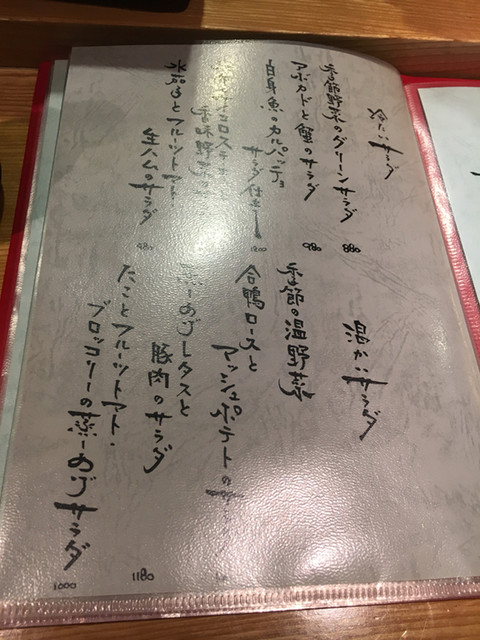 冷たいサラダ
季節野菜のグリーンサラダ
880
アボカドと鮪のサラダ
980
白身魚のカルパッチョ
サラダ仕立て
1200
香味野菜の
水茄子とフルーツトマト
生ハムのサラダ
980
温かいサラダ
季節の温野菜
合鴨ロースと
マッシュポテトの
蒸しあげレタスと
豚肉のサラダ
1180
たことフルーツトマト・
ブロッコリーの蒸しあげサラダ
1000